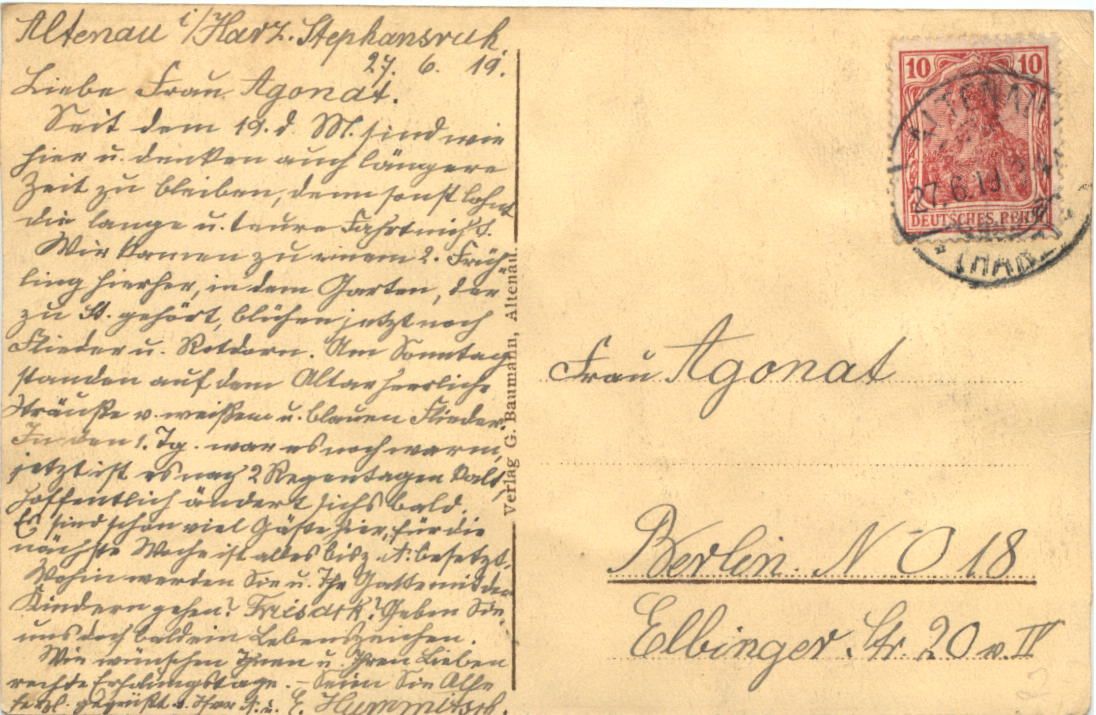 Altenau i/Harz. Stephansruh.
27. 6. 19.
Liebe Frau Agonat.
Seit dem 19. d. M. sind wir
hier u. denken auch längere
Zeit zu bleiben, denn sonst lohnt
die lange u. teure Fahrt nicht.
Wir kamen zu einem 2. Früh-
ling hierher, in dem Garten, der
zu St. gehört, blühen jetzt noch
Flieder u. Rotdorn. Am Sonntag
standen auf dem Altar herrliche
Sträuße v. weißem u. blauen Flieder.
In den 1. Tg. war es noch warm,
jetzt ist es nach 2 Regentagen kalt,
hoffentlich ändert sichs bald.
Es sind schon viel Gäste hier, für die
nächste Woche ist alles bis z. besetzt.
Wohin werden Sie u. Ihr Gatte mit den
Kindern gehen? Geben Sie
uns doch bald ein Lebenszeichen.
Wir wünschen Ihnen u. Ihren Lieben
rechte Erholungstage. – Seien Sie Alle
herzl. gegrüßt v. Ihrer u. E.
Verlag G. Baumann, Altenau.
10 10
DEUTSCHES REICH
ALTENAU
27.6.19
(HARZ)
Frau Agonat
Berlin. N-O 18
Elbinger. Str. 20 v. IV